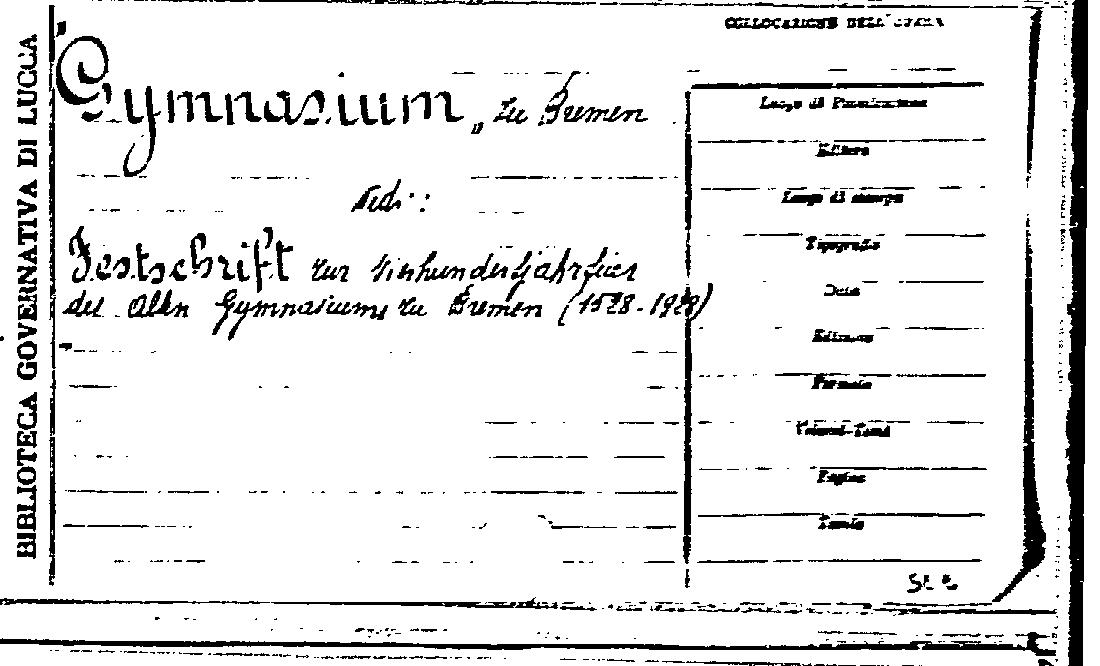 BIBLIOTECA GOVERNATIVA DI LUCCA
"Gymnasium„ zu Bremen
Vedi:
Festschrift zur Vierhundertjahrfeier
des Alten Gymnasiums zu Bremen (1528-1928)
COLLOCAZIONE DELL'OPERA
Luogo di Pubblicazione
Editore
Luogo di stampa
Tipografia
Data
Edizione
Formato
Volumi-Tomi
Pagine
Tavole